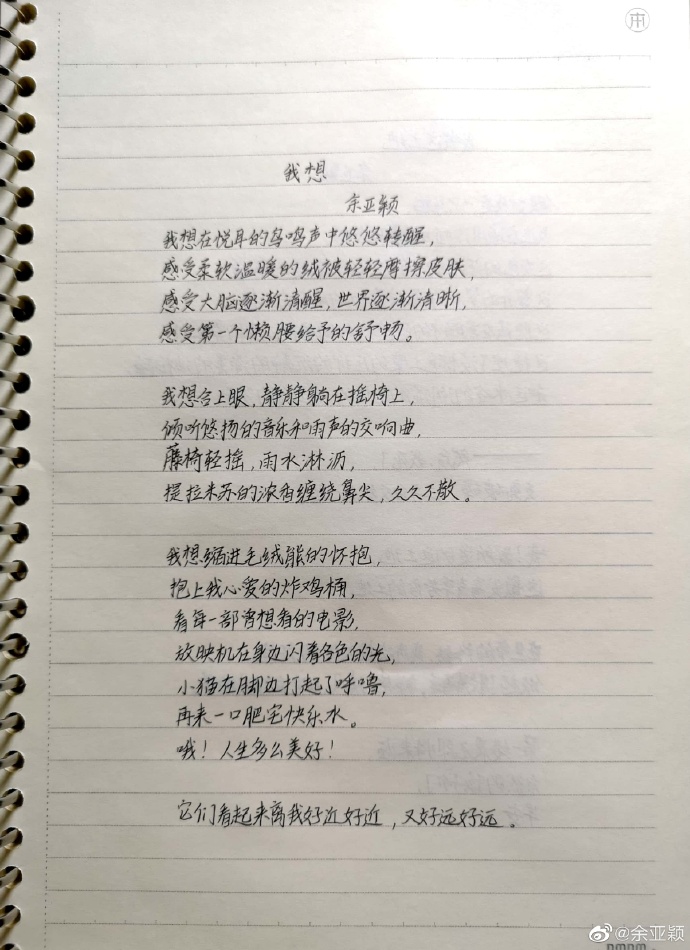 我想
余亚颖
我想在悦耳的鸟鸣声中悠悠转醒，
感受柔软温暖的绒被轻轻摩擦皮肤，
感受大脑逐渐清醒，世界逐渐清晰，
感受第一个懒腰给予的舒畅。
我想合上眼，静静躺在摇椅上，
倾听悠扬的音乐和雨声的交响曲，
藤椅轻摇，雨水淋沥，
提拉米苏的浓香缠绕鼻尖，久久不散。
我想缩进毛绒熊的怀抱，
抱上我心爱的炸鸡桶，
看每一部曾想看的电影，
放映机在身边闪着各色的光，
小猫在脚边打起了呼噜，
再来一口肥宅快乐水。
哦！人生多么美好！
它们看起来离我好近好近，又好远好远。
@余亚颖